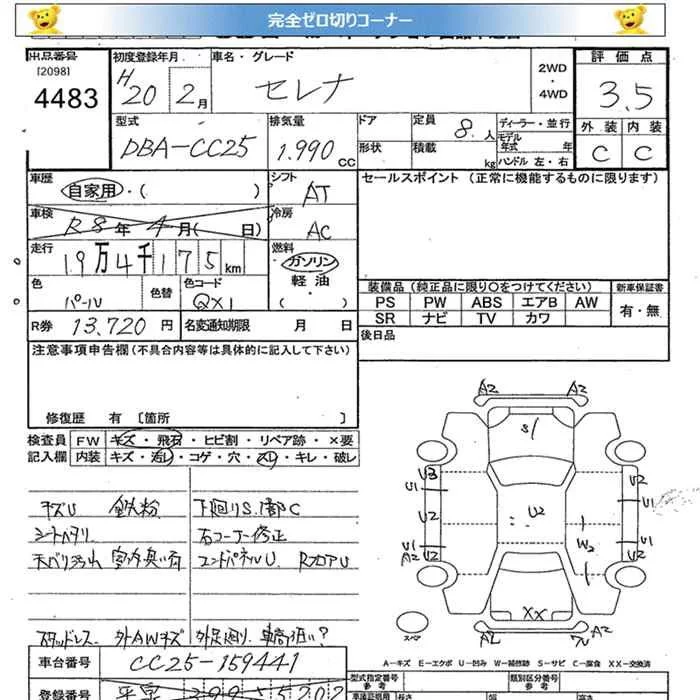 完全ゼロ切りコーナー
出品番号 初度登録年月 車名・グレード 2WD ・ 4WD 評価点
[2098]
4483 H 20 2月 セレナ 3.5
型式 排気量 ドア 定員 8.人 ディーラー・並行 外装 内装
DBA-CC25 1.990 CC 形状 積載 kg モデル年式 年 ハンドル 左・右 C C
車歴 自家用・( ) シフト AT セールスポイント(正常に機能するものに限ります)
車検 R8年 4月( 日) 冷房 AC
走行 19万4千175km 燃料 ガソリン 軽油 ( )
色 パール 色替 色コード QX1
装備品(純正品に限り○をつけてください) 新車保証書
PS PW ABS エアB AW 有・無
SR ナビ TV カワ
R券 13,720円 名変通知期限 月 日 後日品
注意事項申告欄(不具合内容等は具体的に記入して下さい)
修復歴 有 [箇所 ]
検査員 FW キズ・飛石・ヒビ割・リペア跡・×要
記入欄 内装 キズ・汚レ・コゲ・穴・スレ・キレ・破レ
キズU 鉄粉 下廻りS.1部C
シートヘタリ 右コーナー修正
エンドパネルU RフロアU
スタッドレス 外AWキズ
A2 A2
S/
U3 U2
U1 U1
U2 U2 U2
W2
U1 U1
A2 U2 U2
XX
スペア A2 A2
A-キズ E-エクボ U-凹み W-補修跡 S-サビ C-腐食 XX-交換済
車台番号 CC25-159441 型式指定番号 参考 類別区分番号 参考
登録番号 長さ 幅 高さ